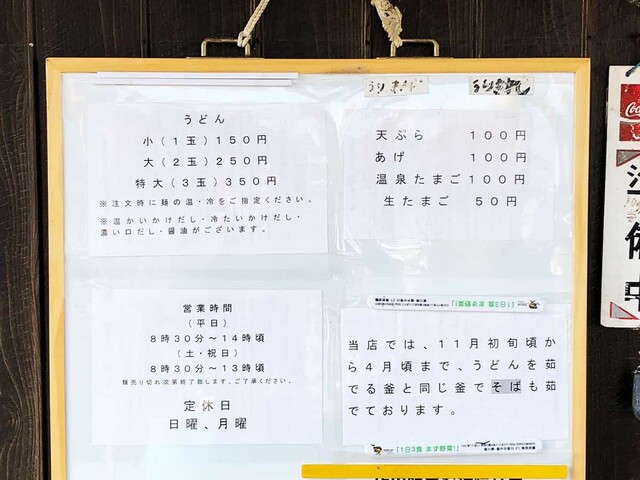 うどん
小(1玉)150円
大(2玉)250円
特大(3玉)350円
※注文時に麺の温・冷をご指定ください。
※温かいかけだし・冷たいかけだし・
濃い口だし・醤油がございます。
天ぷら 100円
あげ 100円
温泉たまご100円
生たまご 50円
営業時間
(平日)
8時30分～14時頃
(土・祝日)
8時30分～13時頃
麺売り切れ次第終了致します。ご了承ください。
定休日
日曜、月曜
「1日3食 まず野菜!」
当店では、11月初旬頃か
ら4月頃まで、うどんを茹
でる釜と同じ釜でそばも茹
でております。
「1日3食 まず野菜!」